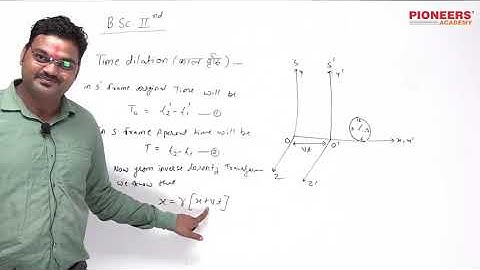 PIONEERS'
ACADEMY
B Sc II nd
Time dilation (काल वृद्धि) —
in s' frame original Time will be
T₀ = t₂' - t₁' — ①
in s frame Aparent time will be
T = t₂ - t₁ — ②
Now from inverse Lorentz Transform
we know that
x = γ [x+vt]
S S'
Y Y'
O vt O' x, x'
Z Z'